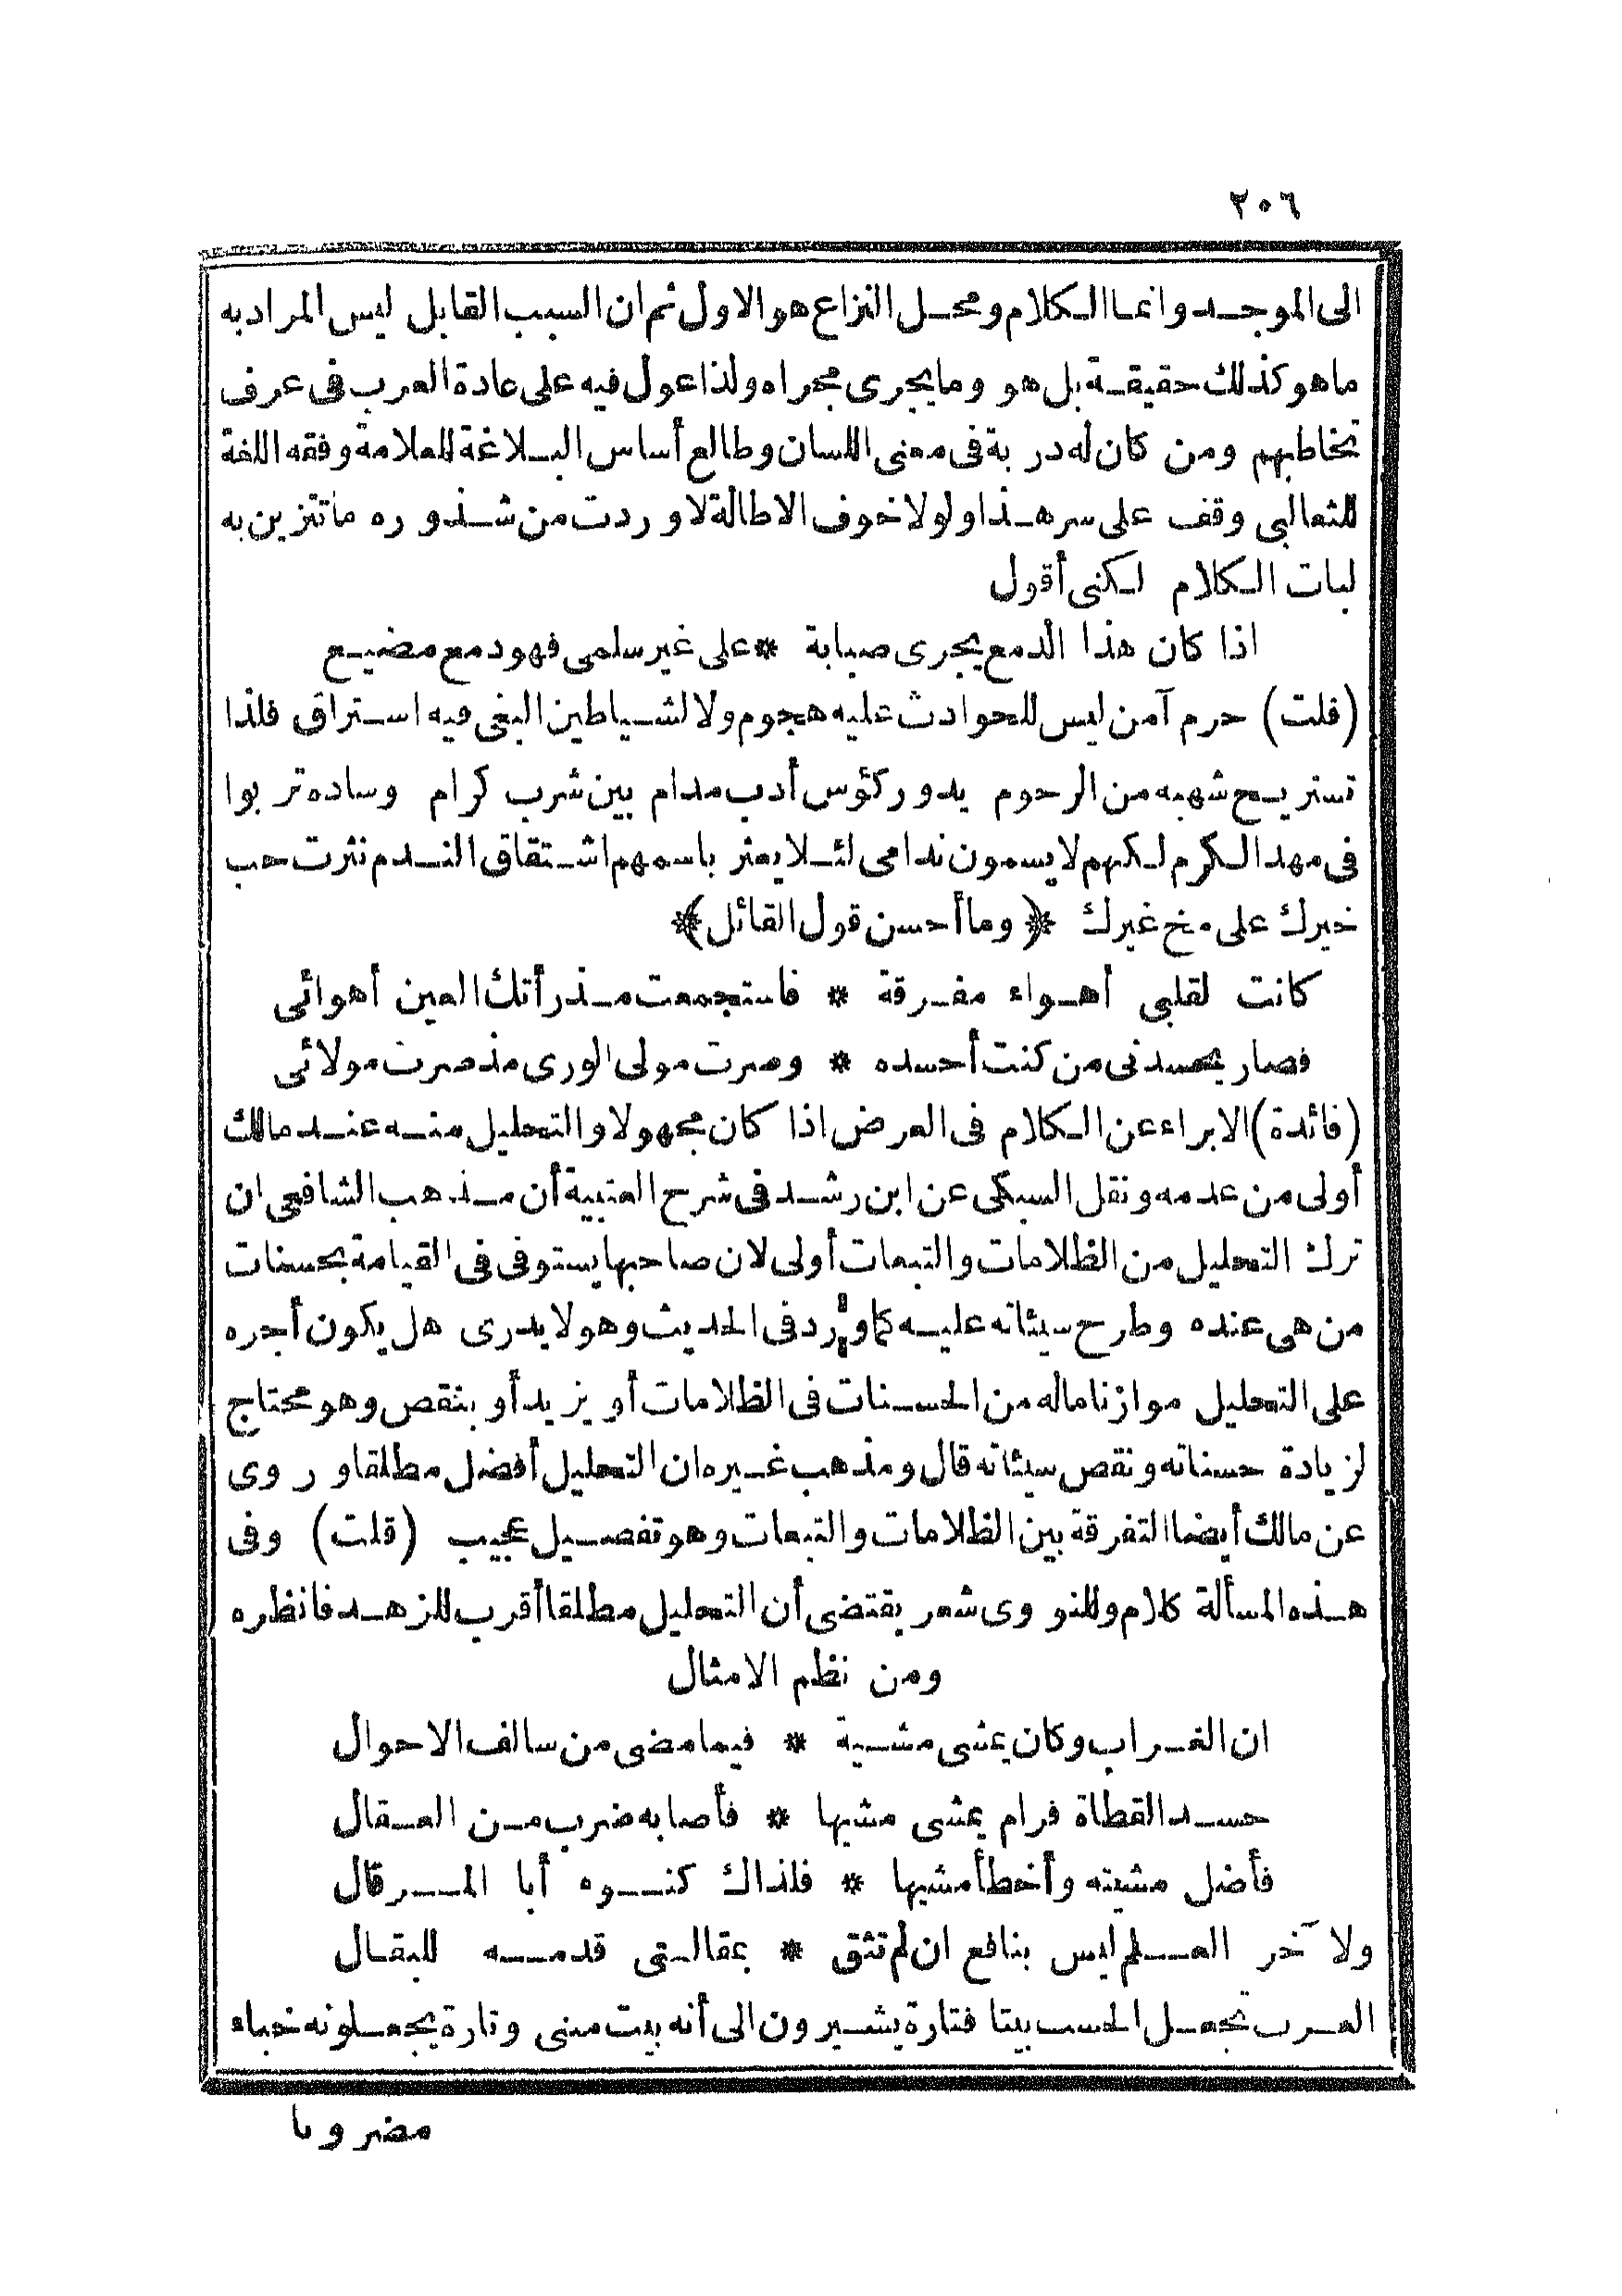 ٢٠٦
الى الموجد وانما الكلام ومحل النزاع هو الاول ثم ان السبب القابل ليس المراد به
ما هو كذلك حقيقة بل هو وما يجرى مجراه ولذا عول فيه على عادة العرب فى عرف
تخاطبهم ومن كان له دربة فى معنى اللسان وطالع أساس البلاغة للعلامة وفقه اللغة
للثعالبى وقف على سر هذا ولولا خوف الاطالة لاوردت من شذوره ما تتزين به
لبات الكلام لكنى أقول
اذا كان هذا الدمع يجرى صبابة * على غير سلمى فهو دمع مضيع
(قلت) حرم آمن ليس للحوادث عليه هجوم ولا لشياطين البغى فيه استراق فلذا
تستريح شهبه من الرجوم يدور كؤس أدب مدام بين شرب كرام وساده تربوا
فى مهد الكرم لكنهم لا يسمون ندامى لئلا يعثر باسمهم اشتقاق الندم نثرت حب
خيرك على مخ غيرك ﴿وما أحسن قول القائل﴾
كانت لقلبى أهواء مفرقة * فاستجمعت مذ رأتك العين أهوائى
فصار يحسدنى من كنت أحسده * وصرت مولى الورى مذ صرت مولائى
(فائدة) الابراء عن الكلام فى العرض اذا كان مجهولا والتحليل منه عند مالك
أولى من عدمه ونقل السبكى عن ابن رشد فى شرح العتبية أن مذهب الشافعى ان
ترك التحليل من الظلامات والتبعات أولى لان صاحبها يستوفى فى القيامة بحسنات
من هى عنده وطرح سيئاته عليه كما ورد فى الحديث وهو لا يدرى هل يكون أجره
على التحليل موازنا ماله من الحسنات فى الظلامات أو يزيد أو ينقص وهو محتاج
لزيادة حسناته ونقص سيئاته قال ومذهب غيره ان التحليل أفضل مطلقا وروى
عن مالك أيضا التفرقة بين الظلامات والتبعات وهو تفصيل عجيب (قلت) وفى
هذه المسألة كلام وللنووى شعر يقتضى أن التحليل مطلقا أقرب للزهد فانظره
ومن نظم الامثال
ان الغراب وكان يمشى مشية * فيما مضى من سالف الاحوال
حسد القطاة فرام يمشى مشيها * فأصابه ضرب من العقال
فأضل مشيته وأخطأ مشيها * فلذاك كنوه أبا المرقال
ولآخر العلم ليس بنافع ان لم تثق * بمقالتى قدمه للبقال
العرب تجعل الحسب بيتا فتارة يشيرون الى أنه بيت مبنى وتارة يجعلونه خباء
مضروبا